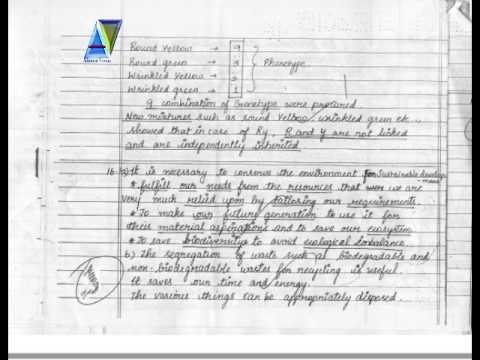 Round Yellow → 9
Round green → 3
Wrinkled Yellow → 3
Wrinkled green → 1
Phenotype
9 combination of Genotype were produced.
New mixtures such as round Yellow, wrinkled green etc.,
showed that in case of Ry, R and Y are not linked
and are independently inherited
16. a) It is necessary to conserve the environment for Sustainable develop
-ment
* fulfill our needs from the resources that we are
very much relied upon by tailoring our requirements.
* To make our future generation to use it for
their material aspirations and to save our ecosystem
* To save biodiversity to avoid ecological imbalance.
b) The segregation of waste such as biodegradable and
non-biodegradable wastes for recycling is useful.
It saves our time and energy.
The various things can be appropriately disposed.